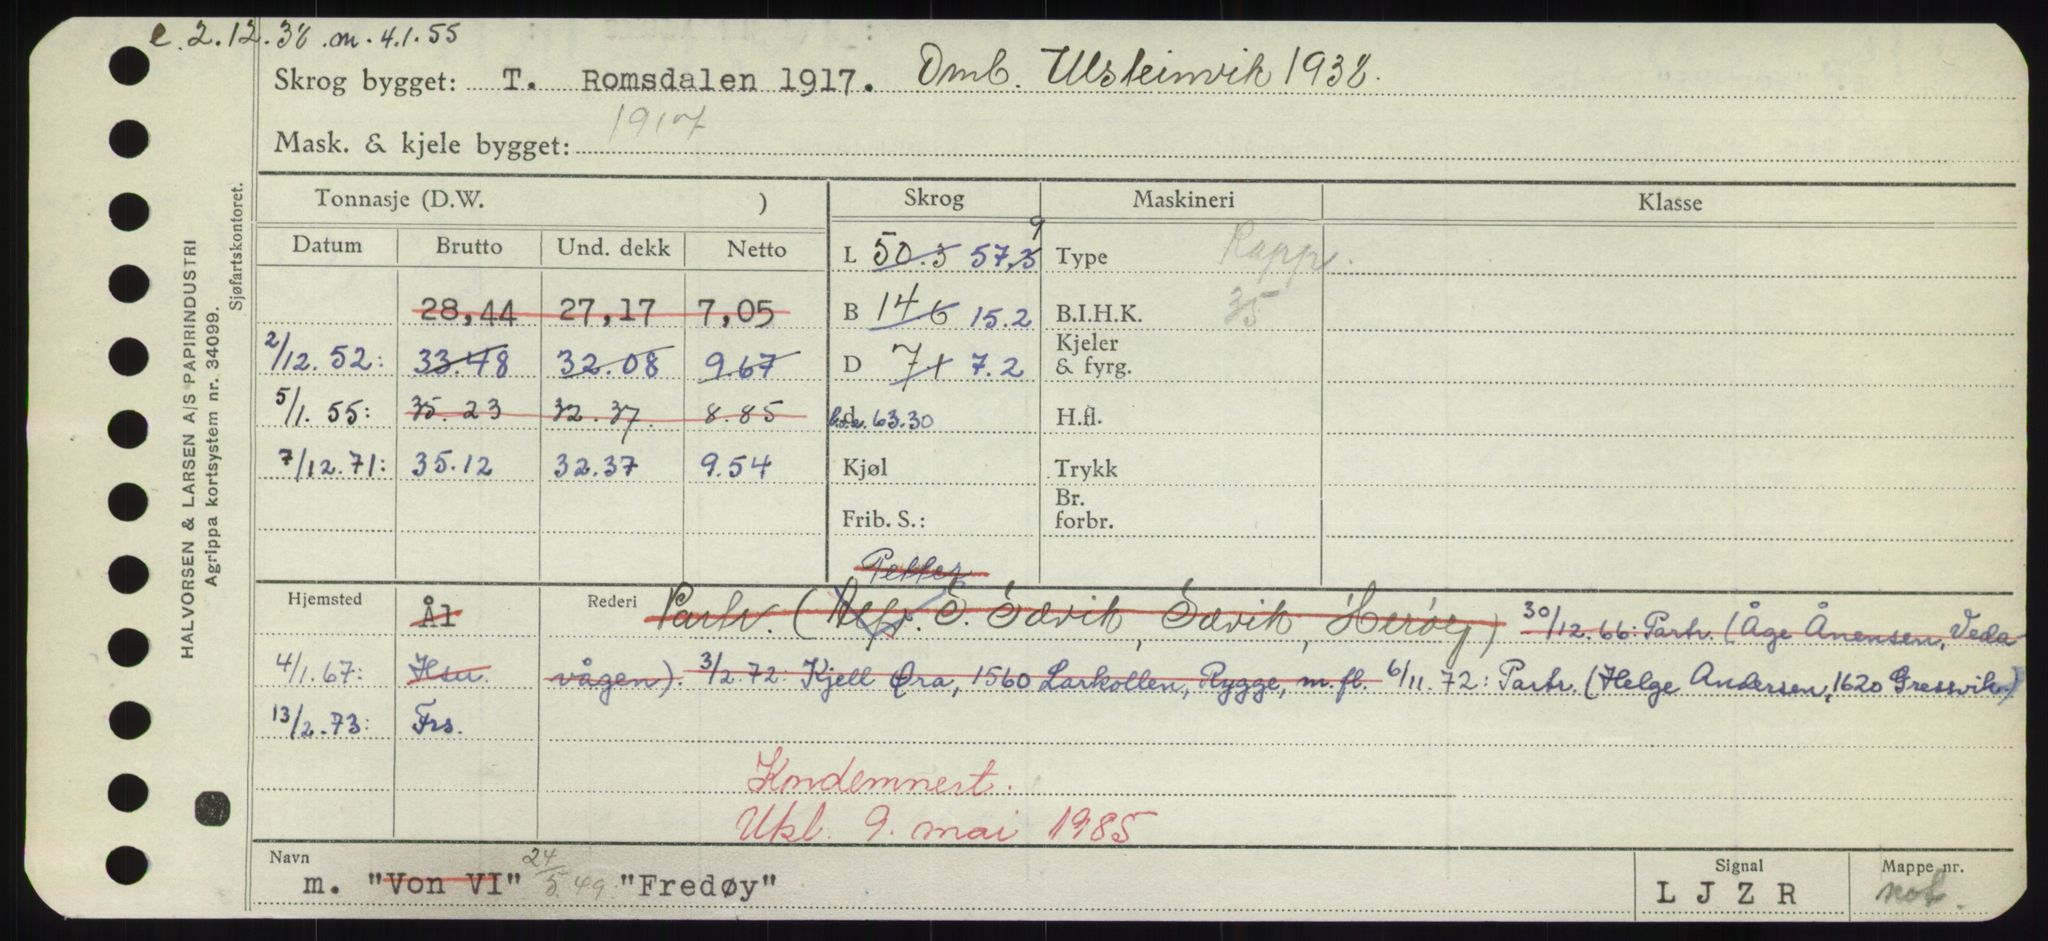 e. 2.12.38 . m. 4.1.55
Skrog bygget: T. Romsdalen 1917. Omb. Ulsteinvik 1938.
Mask. & kjele bygget: 1917
Tonnasje (D.W. ) Skrog Maskineri Klasse
Datum Brutto Und. dekk Netto L 50.5 57,3 9 Type Rapp.
28,44 27,17 7,05 B 14 6 15.2 B.I.H.K. 35
2/12. 52: 33.48 32.08 9.67 D 71 7.2 Kjeler & fyrg.
5/1. 55: 35.23 32.37. 8.85 d 63.30 H.fl.
7/12. 71: 35.12 32.37 9.54 Kjøl Trykk
Frib. S.: Br. forbr.
Petter
Hjemsted Ål Rederi Partr. ( S. Sævik, Sævik, Herøy) 30/12. 66: Partr. (Åge Ånensen, Veda-
4/1. 67: Hsu. vågen). 3/2. 72: Kjell Øra, 1560 Larkollen, Rygge, m. fl. 6/11. 72: Partr. (Helge Andersen, 1620 Gressvik)
13/2. 73: Frs.
Kondemnert.
Utkl. 9. mai 1985
Navn Signal Mappe nr.
m. "Von VI" 24/5 49 "Fredøy" L J Z R
HALVORSEN & LARSEN A/S PAPIRINDUSTRI
Agrippa kortsystem nr. 34099.
Sjøfartskontoret.